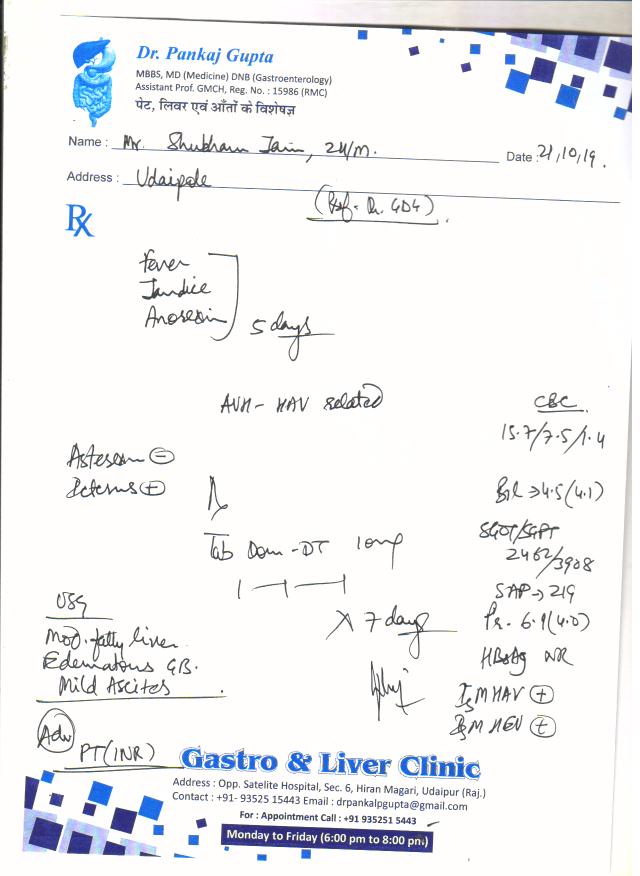 Dr. Pankaj Gupta
MBBS, MD (Medicine) DNB (Gastroenterology)
Assistant Prof. GMCH, Reg. No. : 15986 (RMC)
पेट, लिवर एवं आँतों के विशेषज्ञ
Name : Mr. Shubham Jain, 24/M.
Date : 21/10/19.
Address : Udaipole
(Ref - Dr. GDG)
Rx
Fever
Jaundice
Anorexia
5 days
AVH - HAV related
CBC
15.7/7.5/1.4
Icterus +
Bil → 4.5 (4.1)
Tab Dom-DT 10mg
1 — 1 — 1
SGOT/SGPT
2462/3908
SAP → 219
x 7 days
Pr. 6.9 (4.0)
HBsAg NR
IgM HAV +
IgM HEV +
USG
Mod. fatty liver
Edematous GB.
Mild Ascites
Adv
PT (INR)
Gastro & Liver Clinic
Address : Opp. Satelite Hospital, Sec. 6, Hiran Magari, Udaipur (Raj.)
Contact : +91- 93525 15443 Email : drpankalpgupta@gmail.com
For : Appointment Call : +91 935251 5443
Monday to Friday (6:00 pm to 8:00 pm)